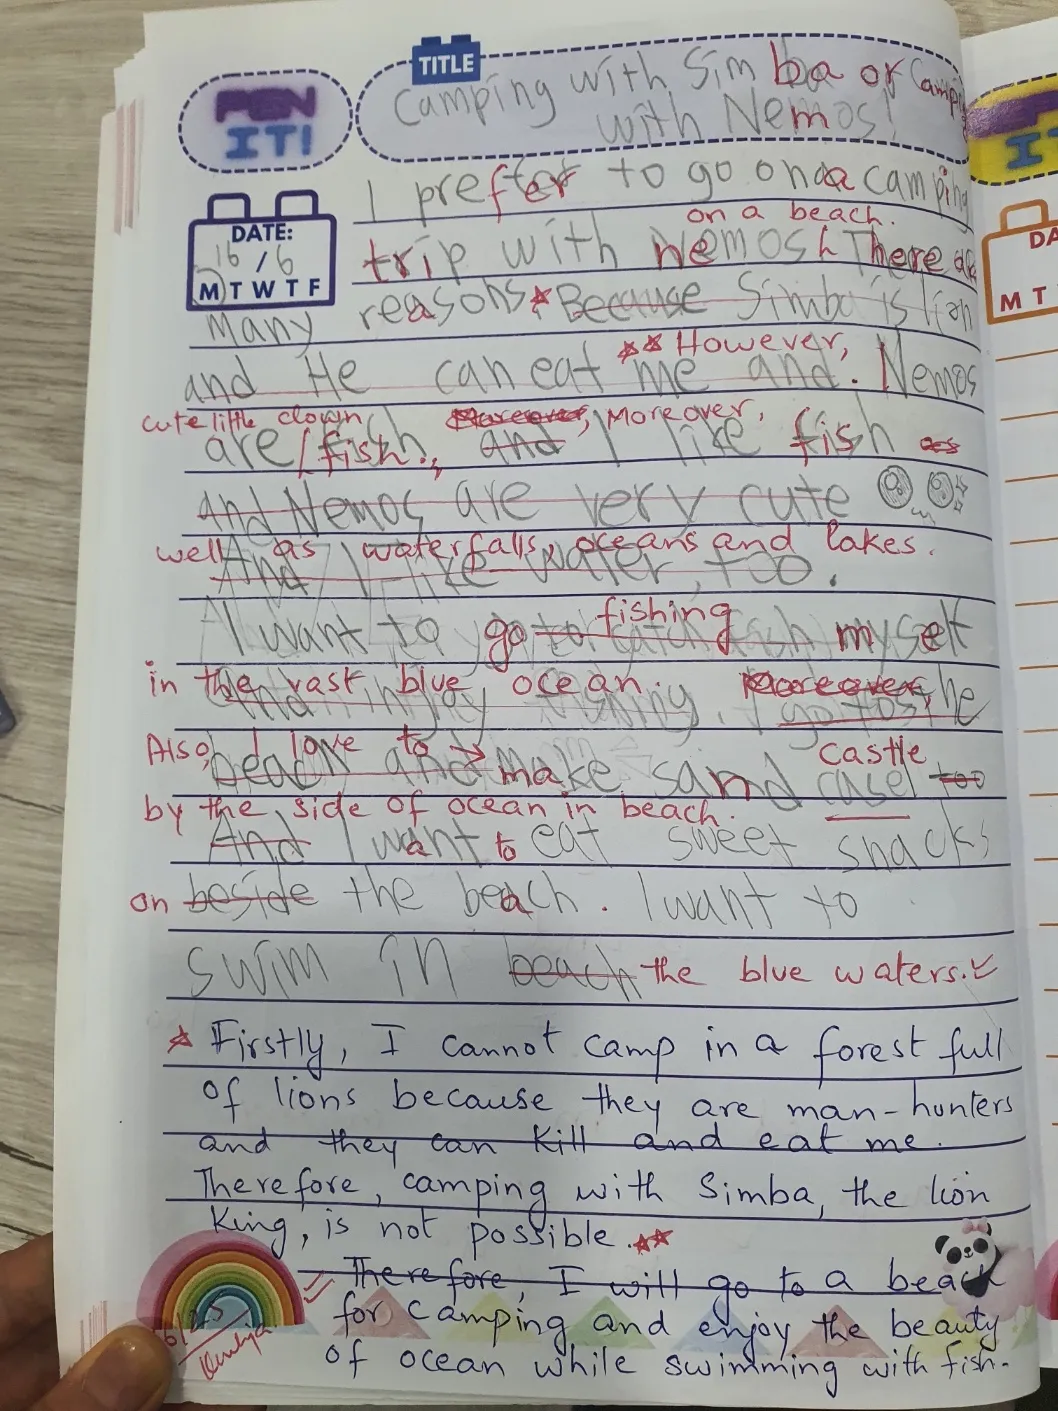 TITLE
PEN
IT!
Camping with Simba or Camping
with Nemos!
I prefer to go on a camping
on a beach.
DATE:
16 / 6
M T W T F
trip with nemos. There are
many reasons * Because Simba is lion
** However,
and He can eat me and. Nemos
cute little clown Moreover, Moreover,
are / fish., and I like fish as
And Nemos are very cute
well as waterfalls, oceans and lakes.
And I like water, too.
fishing
I want to go to catch fish myself
in the vast blue ocean. Moreover
And injoy fishing. I go to the
Also, I love to → castle
beach and make sand casel too
by the side of ocean in beach.
And I want to eat sweet snacks
on beside the beach. I want to
swim in beach the blue waters.
* Firstly, I cannot camp in a forest full
of lions because they are man-hunters
and they can kill and eat me.
Therefore, camping with Simba, the lion
King, is not possible. **
Therefore, I will go to a beach
for camping and enjoy the beauty
of ocean while swimming with fish.
IT
DA
M T